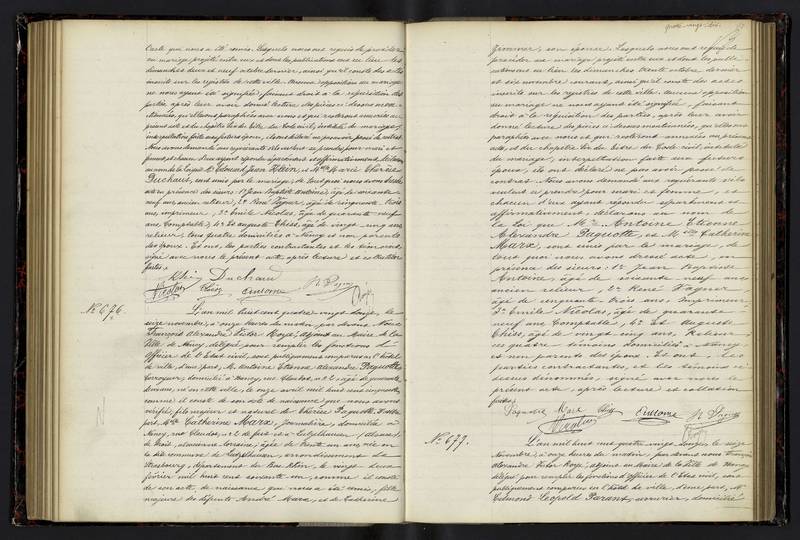 l'acte qui nous a été remis. Lesquels nous ont requis de procéder
au mariage projeté entre eux et dont les publications ont eu lieu les
dimanches deux et neuf octobre dernier, ainsi qu'il conste des actes
inscrits sur les registres de cette ville. Aucune opposition au mariage
ne nous ayant été signifiée, faisant droit à la réquisition des
parties, après leur avoir donné lecture des pièces ci-dessus
et du chapitre six du titre du Code civil, intitulé du mariage,
Nous avons demandé aux requérants s'ils veulent se prendre pour mari et
femme, et chacun d'eux ayant répondu séparément et affirmativement, déclarons
au nom de la loi que Mr. Edouard Jean Klein, et Melle Marie Thérèse
Duchaut, sont unis par le mariage, de tout quoi nous avons dressé
acte en présence des sieurs: 1° Jean Baptiste Antoine, âgé de soixante
neuf ans, ancien relieur, 2° René Wagner, âgé de cinquante trois
ans, imprimeur, 3° Emile Nicolas, âgé de quarante neuf
ans, Comptable, 4° Et Auguste Thiss, âgé de vingt cinq ans
relieur, tous quatre domiciliés à Nancy et non parents
des époux. Et ont, les parties contractantes et les témoins
signé avec nous le présent acte, après lecture et collation
faites.
Klein Duchaut
Nicolas Thiss Antoine
N° 676.
L'an mil huit cent quatre vingt douze, le
seize novembre, à onze heures du matin, par devant Nous
François Alexandre Victor Noyé, adjoint au Maire de la
Ville de Nancy, délégué pour remplir les fonctions d'
Officier de l'Etat civil, sont publiquement comparus en l'hôtel
de ville, d'une part, M. Antoine Etienne Alexandre Paquotte,
Corroyeur, domicilié à Nancy, rue Clodion, n° 2, âgé de quarante
deux ans, né en cette ville, le onze avril mil huit cent cinquante,
comme il conste de son acte de naissance que nous avons
vérifié, fils majeur et naturel de Thérèse Paquotte,
part, Melle Catherine Marx, journalière, domiciliée à
Nancy, rue Clodion, n° 2 de fait et à Lutzelhausen (Alsace)
de droit, Alsacienne Lorraine, âgée de trente un ans, née en
la dite commune de Lutzelhausen, arrondissement de
Strasbourg, département du Bas Rhin, le vingt deux
février mil huit cent soixante un, comme il conste
de son acte de naissance que nous a été remis, fille
majeure des défunts André Marx, et de Catherine
Zimmer, son épouse. Lesquels nous ont requis de
procéder au mariage projeté entre eux et dont les publications
ont eu lieu les dimanches trente octobre dernier
et six novembre courant, ainsi qu'il conste des actes
inscrits sur les registres de cette ville. Aucune opposition
au mariage ne nous ayant été signifiée, faisant
droit à la réquisition des parties, après leur avoir
donné lecture des pièces ci-dessus mentionnées, qu'elles ont
paraphées avec nous et qui resteront annexées au présent
acte, et du chapitre six du titre du Code civil, intitulé
du mariage, interpellation faite aux futurs
époux, ils ont déclaré ne pas avoir passé de
contrat. Nous avons demandé aux requérants s'ils
veulent se prendre pour mari et femme, et
chacun d'eux ayant répondu séparément et
affirmativement, déclarons au nom de
la loi que Mr. Antoine Etienne
Alexandre Paquotte, et Melle Catherine
Marx, sont unis par le mariage, de
tout quoi nous avons dressé acte, en
présence des sieurs: 1° Jean Baptiste
Antoine, âgé de soixante neuf ans,
ancien relieur, 2° René Wagner,
âgé de cinquante trois ans, Imprimeur,
3° Emile Nicolas, âgé de quarante
neuf ans, Comptable, 4° Et Auguste
Thiss, âgé de vingt cinq ans, Relieur
ces quatre témoins domiciliés à Nancy
et non parents des époux. Et ont, Les
parties contractantes, et les témoins ci-
dessus dénommés, signé avec nous le
présent acte, après lecture et collation
faites.
Paquotte Marx Thiss Antoine
Nicolas
N° 677.
L'an mil huit cent quatre vingt douze, le seize
Novembre, à onze heures du matin, par devant nous François
Alexandre Victor Noyé, adjoint au Maire de la Ville de Nancy
délégué pour remplir les fonctions d'Officier de l'Etat civil, sont
publiquement comparus en l'hôtel de ville, d'une part, Mr
Edmond Léopold Parant, serrurier, domicilié